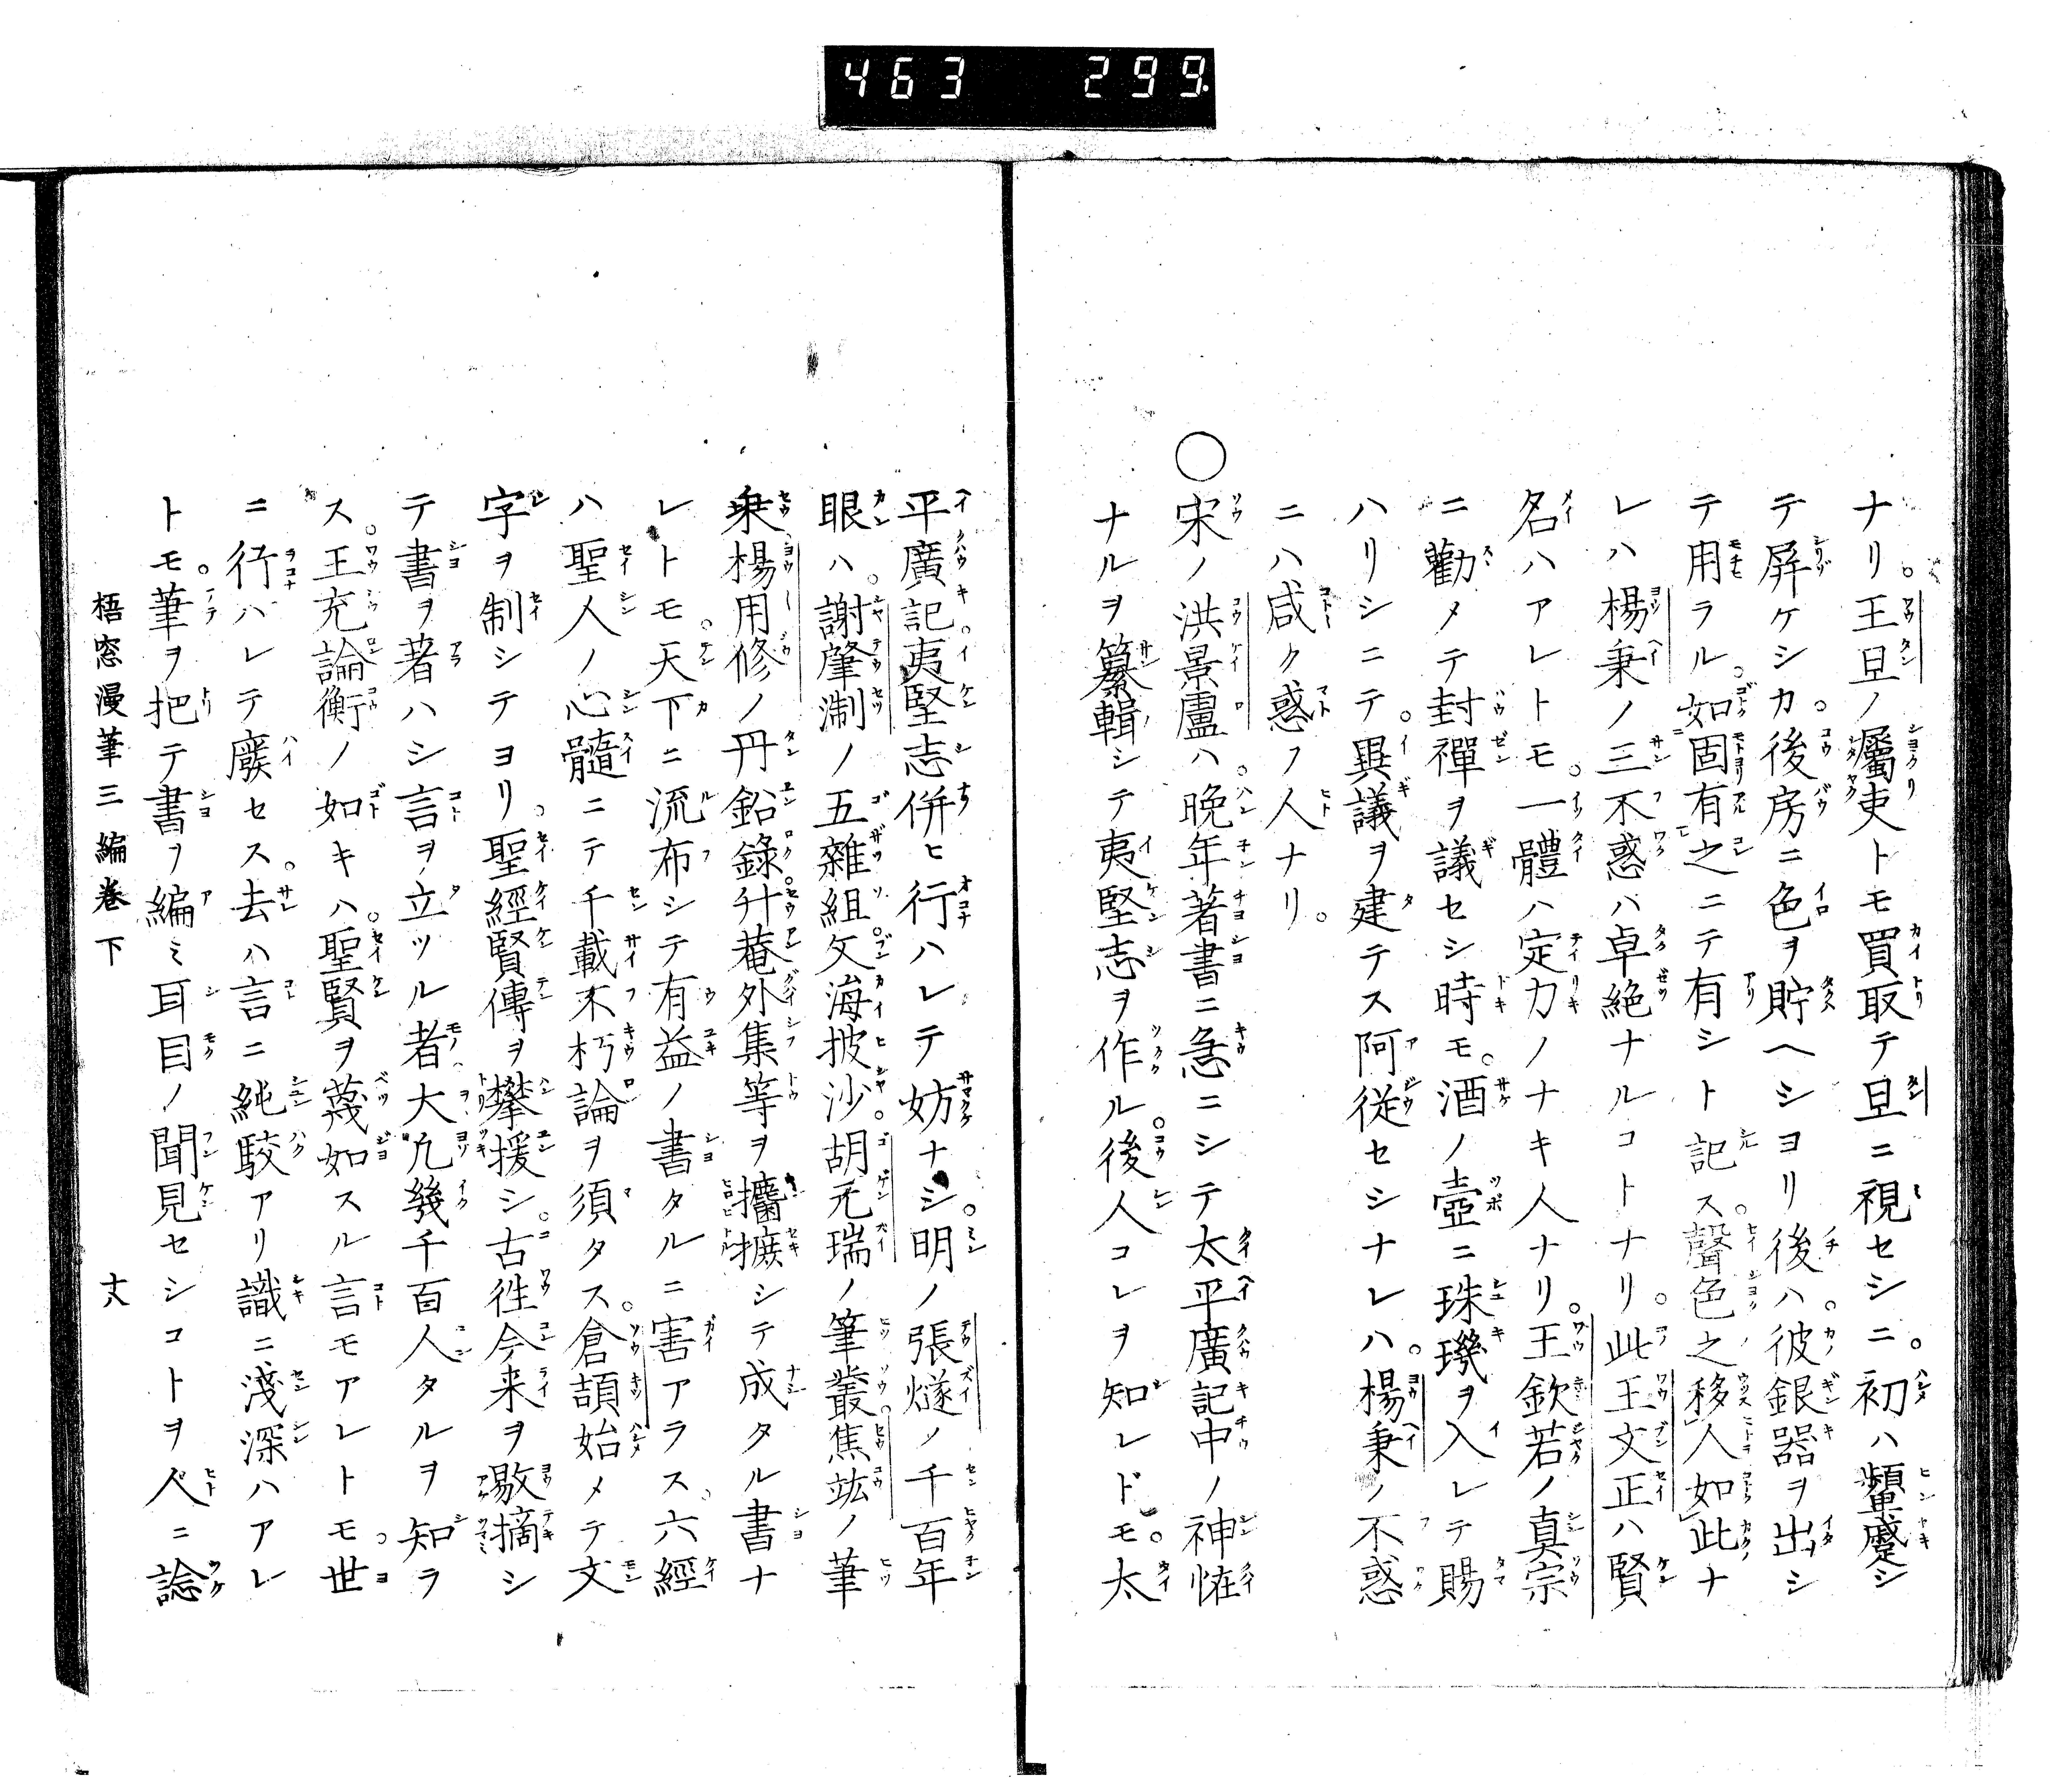 463 299.
ナリ。王旦ノ屬吏トモ買取テ旦ニ視セシニ。初ハ顰蹙シ
テ屏ケシカ。後房ニ色ヲ貯ヘシヨリ後ハ。彼銀器ヲ出シ
テ用ラル。如固有之ニテ有シト記ス。聲色之移人如此ナ
レハ楊秉ノ三不惑ハ卓絶ナルコトナリ。此王文正ハ賢
名ハアレトモ。一體ハ定力ノナキ人ナリ。王欽若ノ真宗
ニ勸メテ封禪ヲ議セシ時モ。酒ノ壺ニ珠璣ヲ入レテ賜
ハリシニテ。異議ヲ建テス阿從セシナレハ。楊秉ノ不惑
ニハ咸ク惑フ人ナリ。
〇宋ノ洪景盧ハ。晩年著書ニ急ニシテ太平廣記中ノ神怪
ナルヲ纂輯シテ夷堅志ヲ作ル。後人コレヲ知レドモ。太
平廣記。夷堅志併ヒ行ハレテ妨ナシ。明ノ張燧ノ千百年
眼ハ。謝肇淛ノ五雜組。文海披沙。胡元瑞ノ筆叢。焦竑ノ筆
乗。楊用修ノ丹鉛錄。升菴外集等ヲ攟摭シテ成タル書ナ
レトモ。天下ニ流布シテ有益ノ書タルニ害アラス。六經
ハ聖人ノ心髓ニテ千載不朽論ヲ須タス。倉頡始メテ文
字ヲ制シテヨリ。聖經賢傳ヲ攀援シ。古徃今来ヲ激摘シ
テ書ヲ著ハシ言ヲ立ツル者大凢幾千百人タルヲ知ラ
ス。王充論衡ノ如キハ。聖賢ヲ蔑如スル言モアレトモ。世
ニ行ハレテ廢セス。去ハ言ニ純駮アリ識ニ淺深ハアレ
トモ。筆ヲ把テ書ヲ編ミ耳目ノ聞見セシコトヲ人ニ諗
梧窓漫筆三編卷下 十八